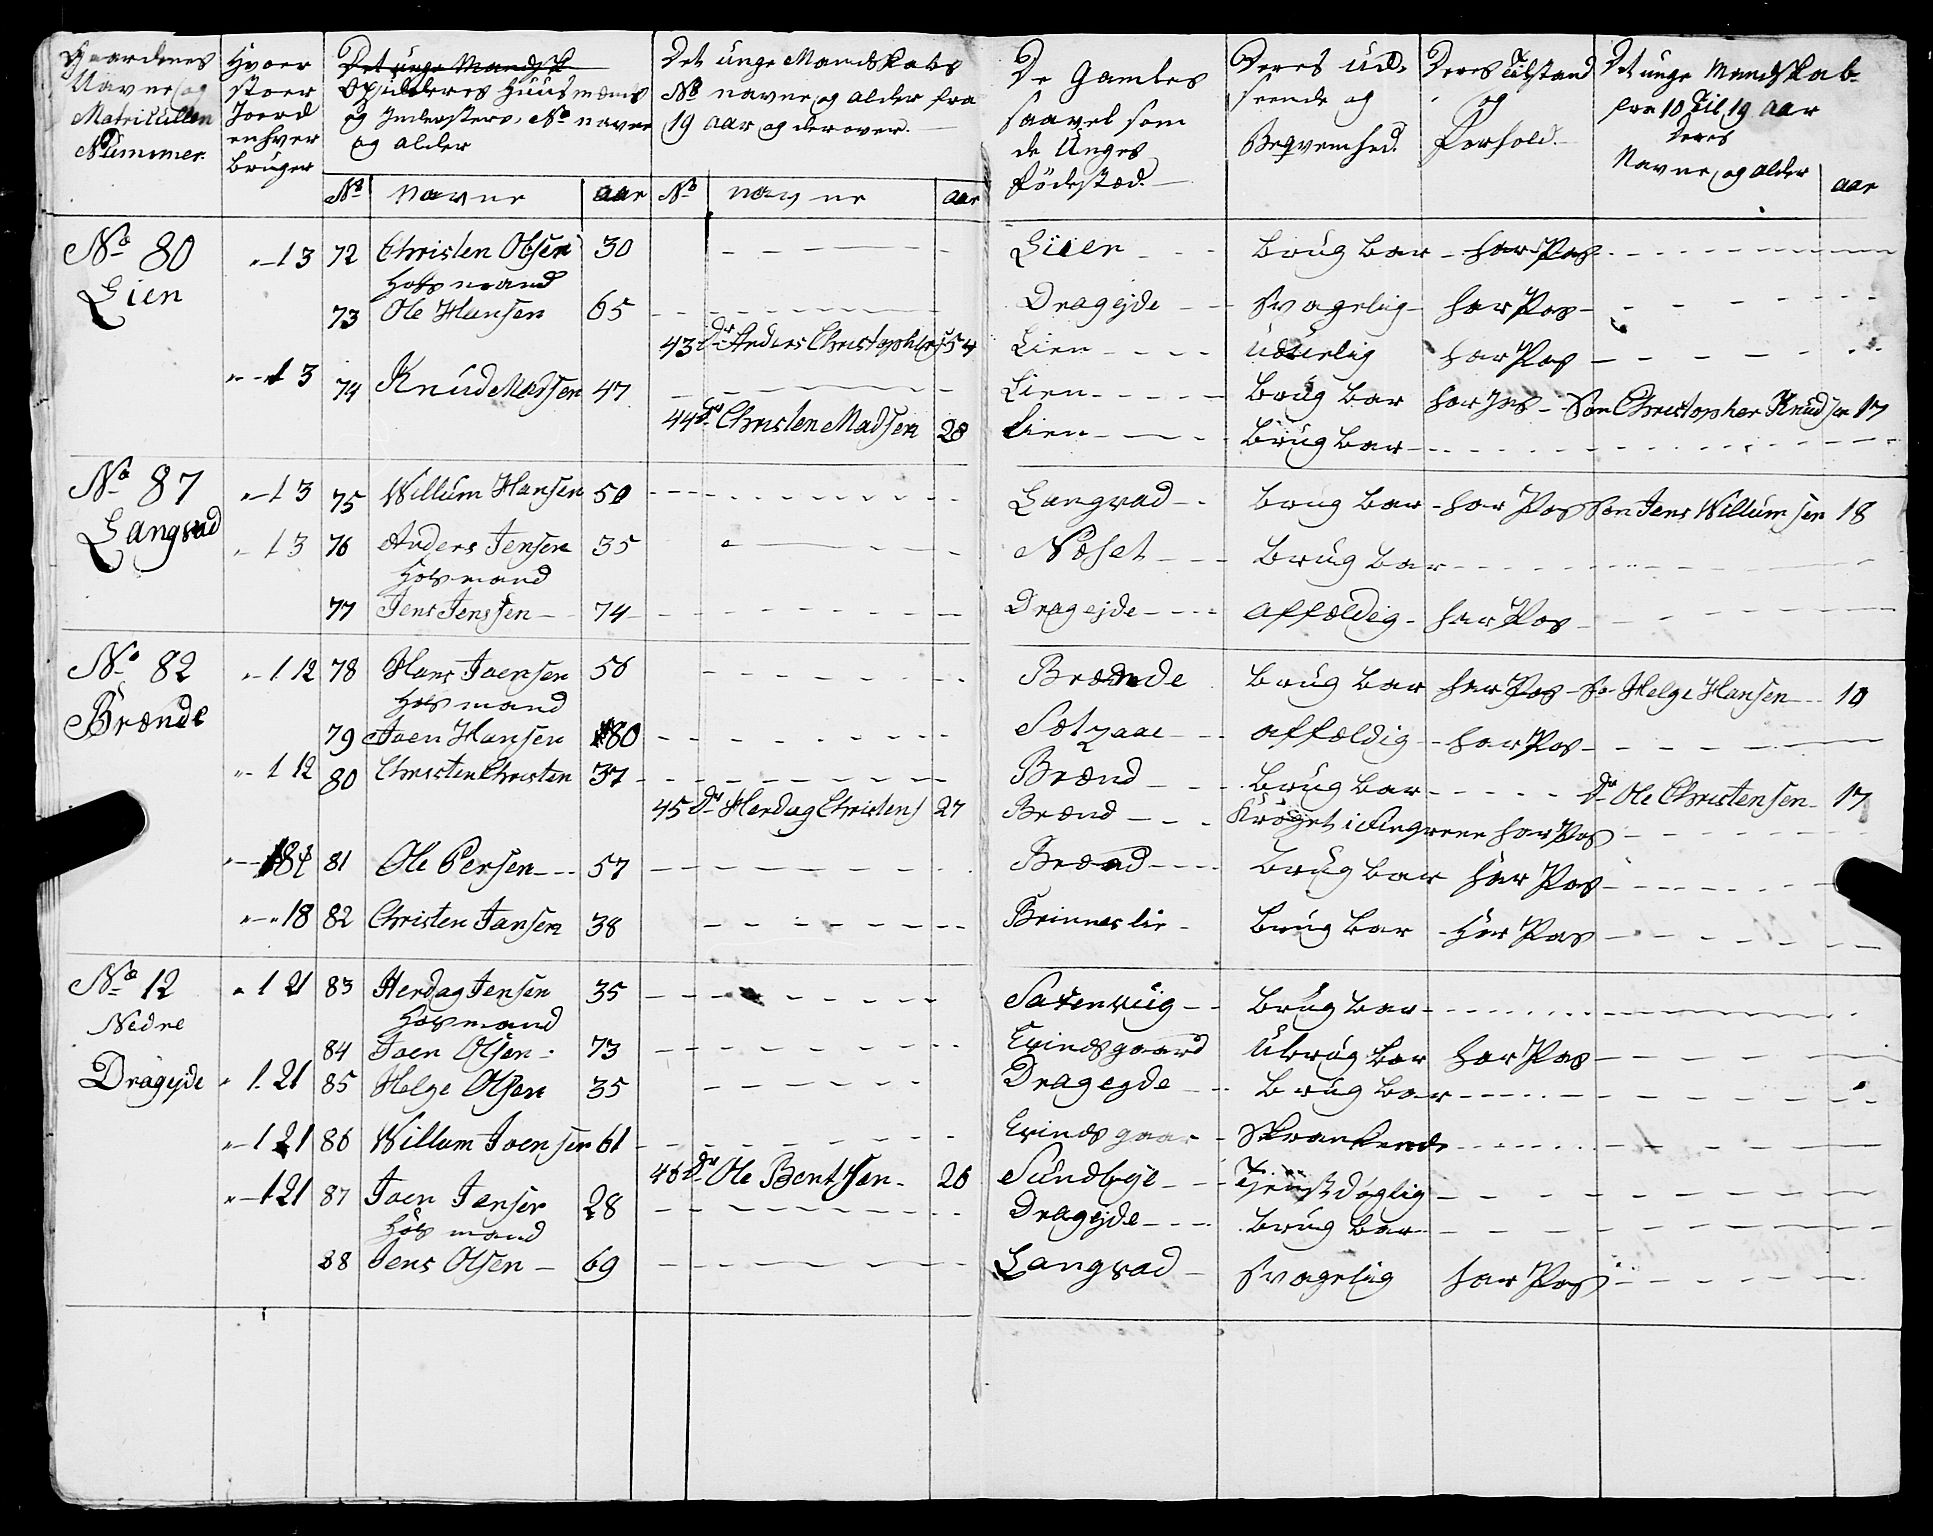 Gaardenes Navne og Matricullen Nummer.
Hvoer stoer Joerd enhver bruger
Det unge Mandsk
Opsidderes Huusmæns og Indersters, No navne og alder
Det unge Mandskabs No navne og alder fra 19 aar og derover.
De Gamles saavel som de Unges födestæd.
Deres udseende og Beqvemhed.
Deres Tilstand og forhold.
Det unge Mandskab fra 10 Til 19 aar deres Navne, og alder
aar
No navne aar No navne aar
No 80 Lien 1 3 72 Christen Olsen 30 Lien brug bar har Pas
Hosmand
73 Ole Hansen 65 Dragejde svagelig har Pas
43 Dr Anders Christophers 54 Lien uduelig har Pas
1 3 74 Knud Madsen 47 Lien brug bar har Pas Søn Christopher Knudsen 17
44 Dr Christen Madsen 28 Lien brug bar
No 87 Langvad 1 3 75 Willum Hansen 50 Langvad brug bar har Pas Søn Jens Willumsen 18
1 3 76 Anders Jensen 35 Næset brug bar
Hosmand
77 Jens Jenssen 74 Dragejde affældig har Pas
No 82 Brænde 1 12 78 Hans Joensen 56 Brænde brug bar har Pas Sø Helge Hansen 10
Hosmand
79 Joen Hansen 80 affældig har Pas
1 12 80 Christen Christen 37 Brænd brug bar Dr Ole Christensen 17
45 Dr Herdag Christens 27 Brænd Kröget i fingrene har Pas
81 Ole Persen 57 Brænd brug bar har Pas
18 82 Christen Jansen 38 Brinnes lie brug bar har Pas
No 12 Nedre Dragejde 1 21 83 Herdag Jensen 35 brug bar
Hosmand
84 Joen Olsen 73 Evindsgaard Ubrug bar har Pas
1 21 85 Helge Olsen 35 Dragejde brug bar
1 21 86 Willum Joensen 61 Evinds gaar Skrantende
46 Dr Ole Bentsen 26 Sundbye Tjenst döglig
1 21 87 Joen Jensen 28 Dragejde brug bar
Hos mand
88 Jens Olsen 69 Langvad svagelig har Pas